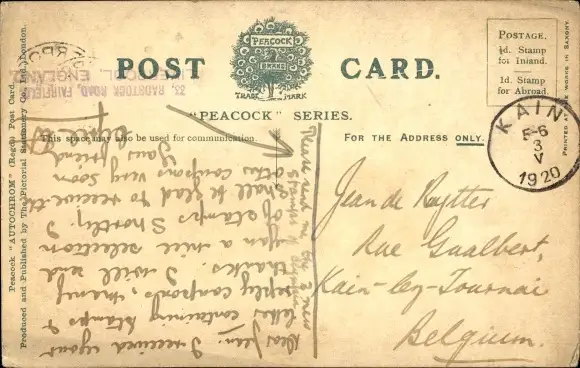 POST CARD.
PEACOCK
TRADE MARK
"PEACOCK" SERIES.
This space may also be used for communication.
FOR THE ADDRESS ONLY.
POSTAGE.
½d. Stamp
for Inland.
1d. Stamp
for Abroad.
PRINTED AT THE WORKS IN SAXONY.
Peacock "AUTOCHROM" (Regd.) Post Card.
Produced and Published by The Pictorial Stationery Co., Ltd., London.
23, RADSTOCK ROAD, FAIRFIELD,
LIVERPOOL, ENGLAND.
KAIN
5-6
3
V
1920
Jean de Ruytter
Rue Gualbert,
Kain-lez-Tournai
Belgium.
Dear Jean. I received your
letter containing stamps &
reply coupons, many
thanks. I will send
you a nice selection
of stamps shortly. I
shall be glad to receive the
other coupons very soon
Your friend
Please send me the 2 new
stamps of